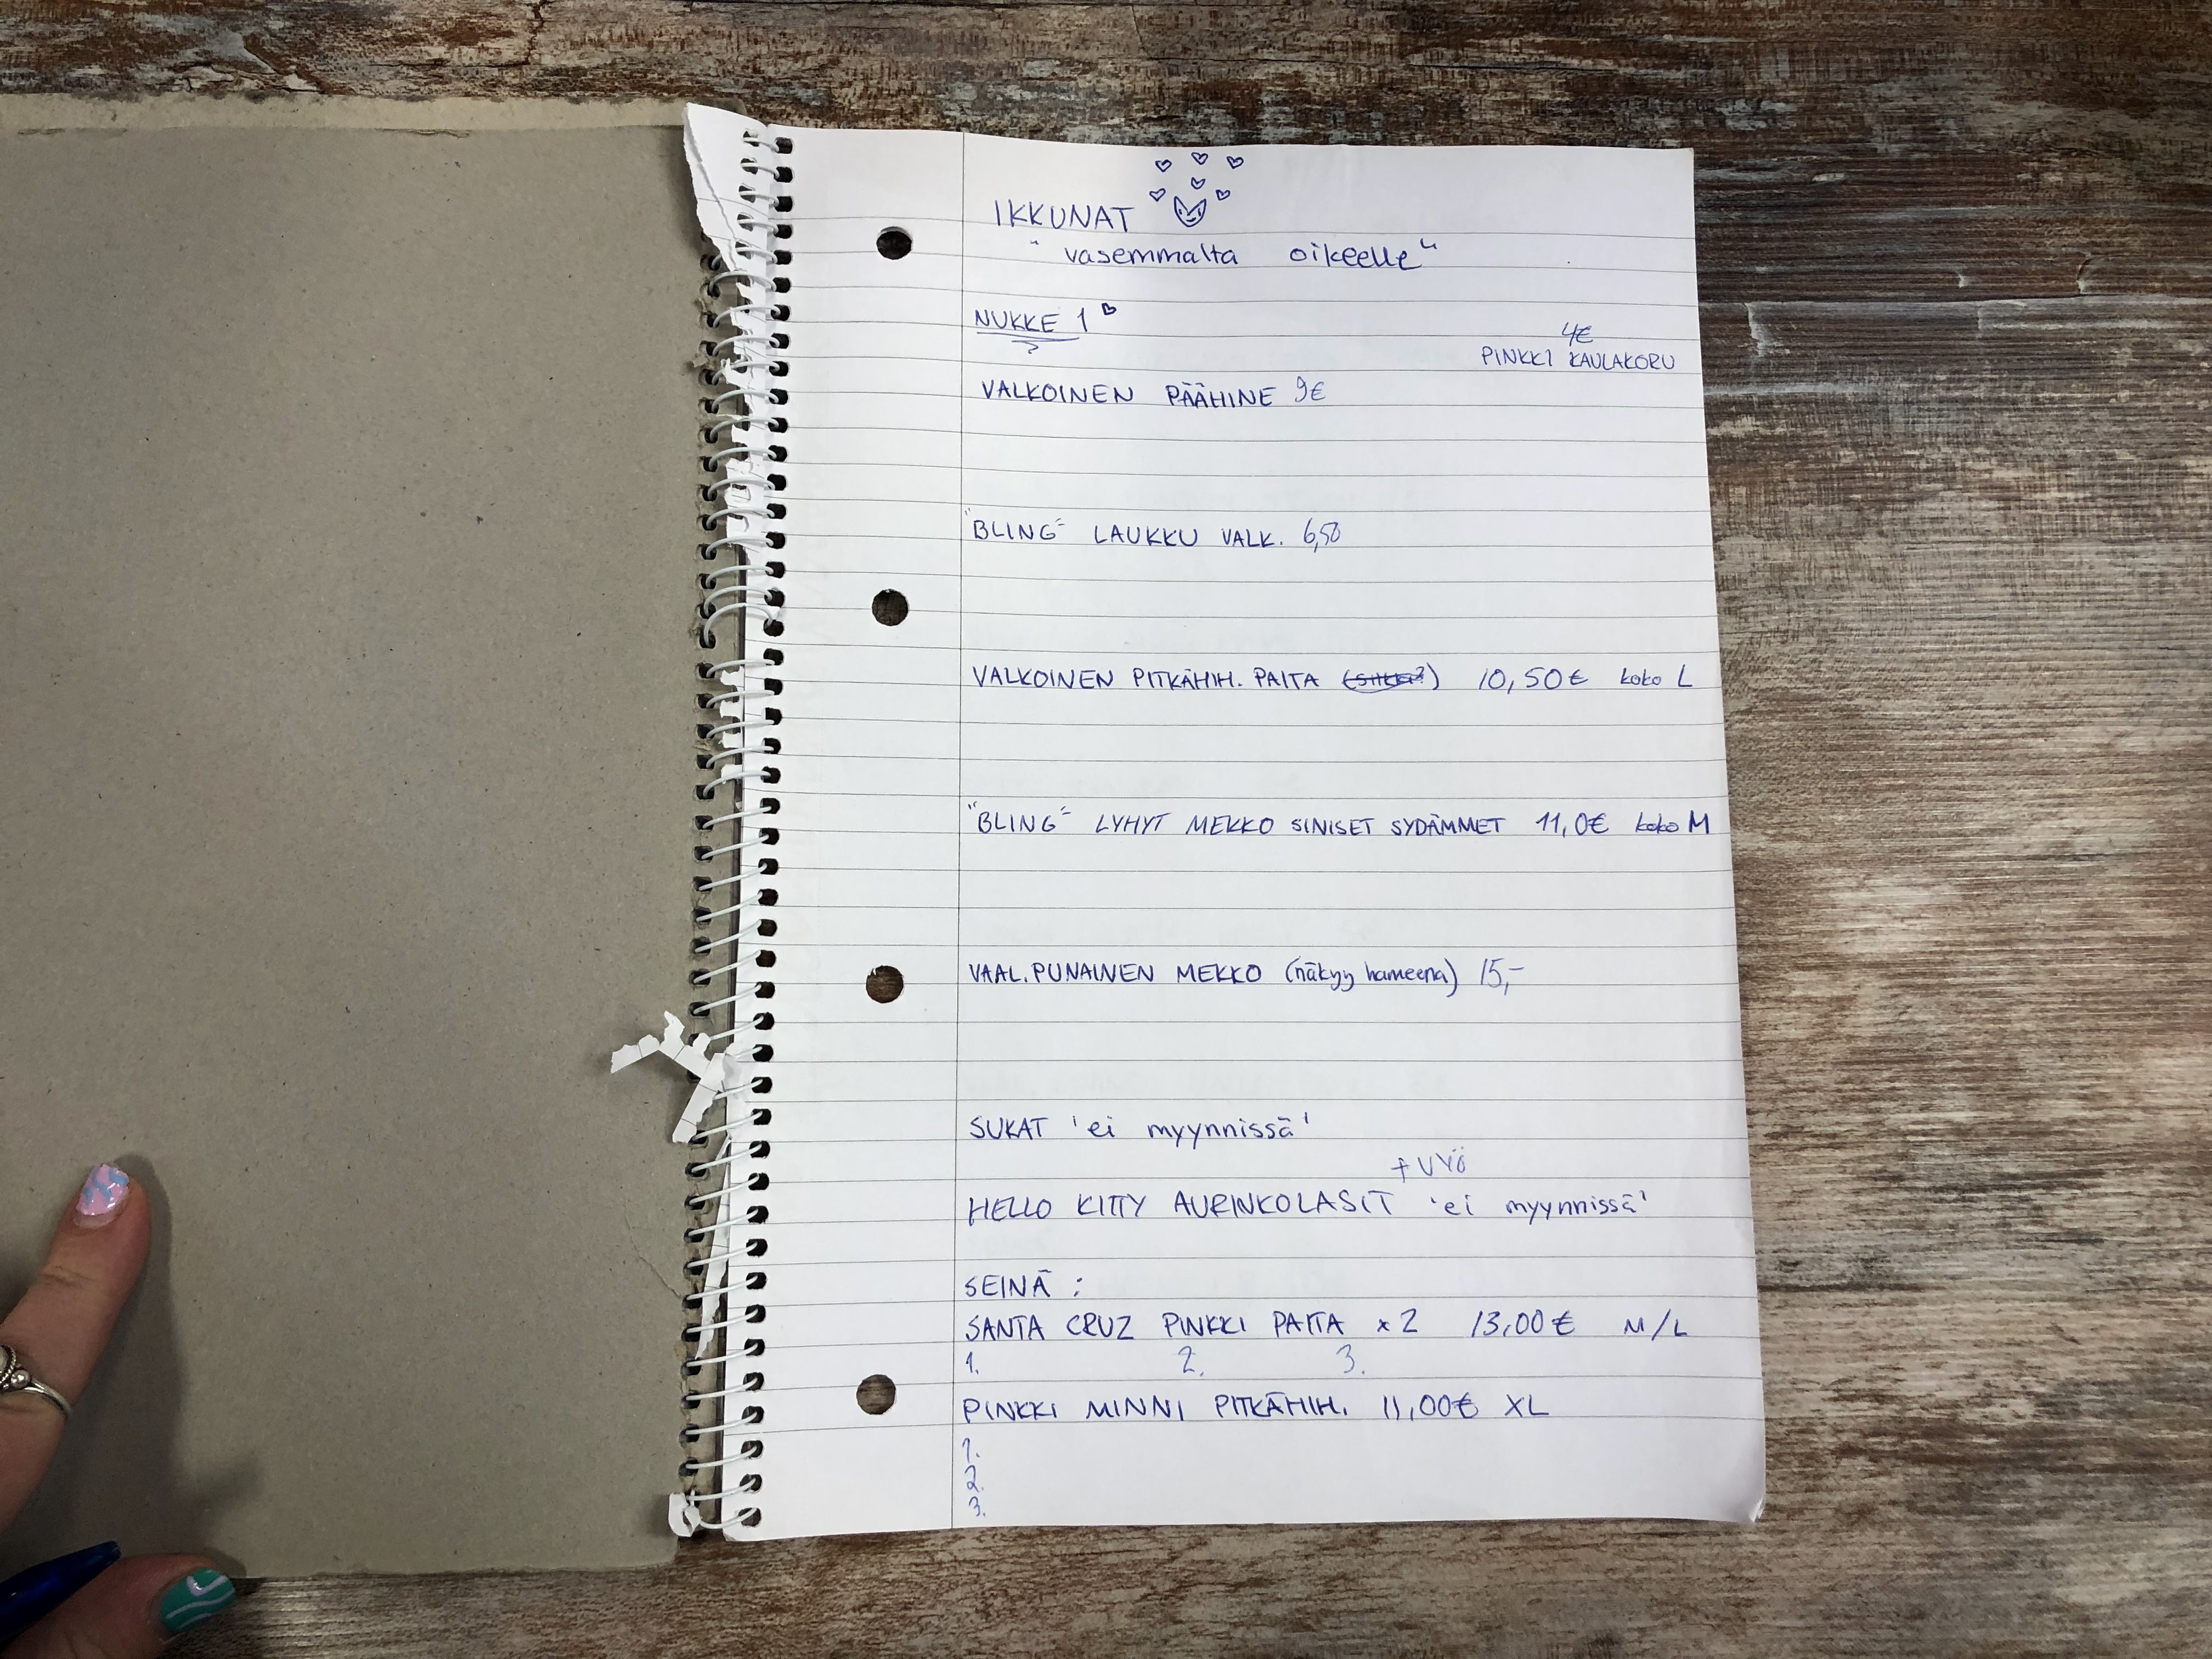 IKKUNAT
"vasemmalta oikeelle"
NUKKE 1
4€
PINKKI KAULAKORU
VALKOINEN PÄÄHINE 9€
"BLING" LAUKKU VALK. 6,50
VALKOINEN PITKÄHIH. PAITA 10,50€ koko L
"BLING" LYHYT MEKKO SINISET SYDÄMMET 11,0€ koko M
VAAL.PUNAINEN MEKKO (näkyy hameena) 15,-
SUKAT 'ei myynnissä'
+ VYÖ
HELLO KITTY AURINKOLASIT 'ei myynnissä'
SEINÄ :
SANTA CRUZ PINKKI PAITA x 2 13,00€ M/L
1. 2. 3.
PINKKI MINNI PITKÄHIH. 11,00€ XL
1.
2.
3.